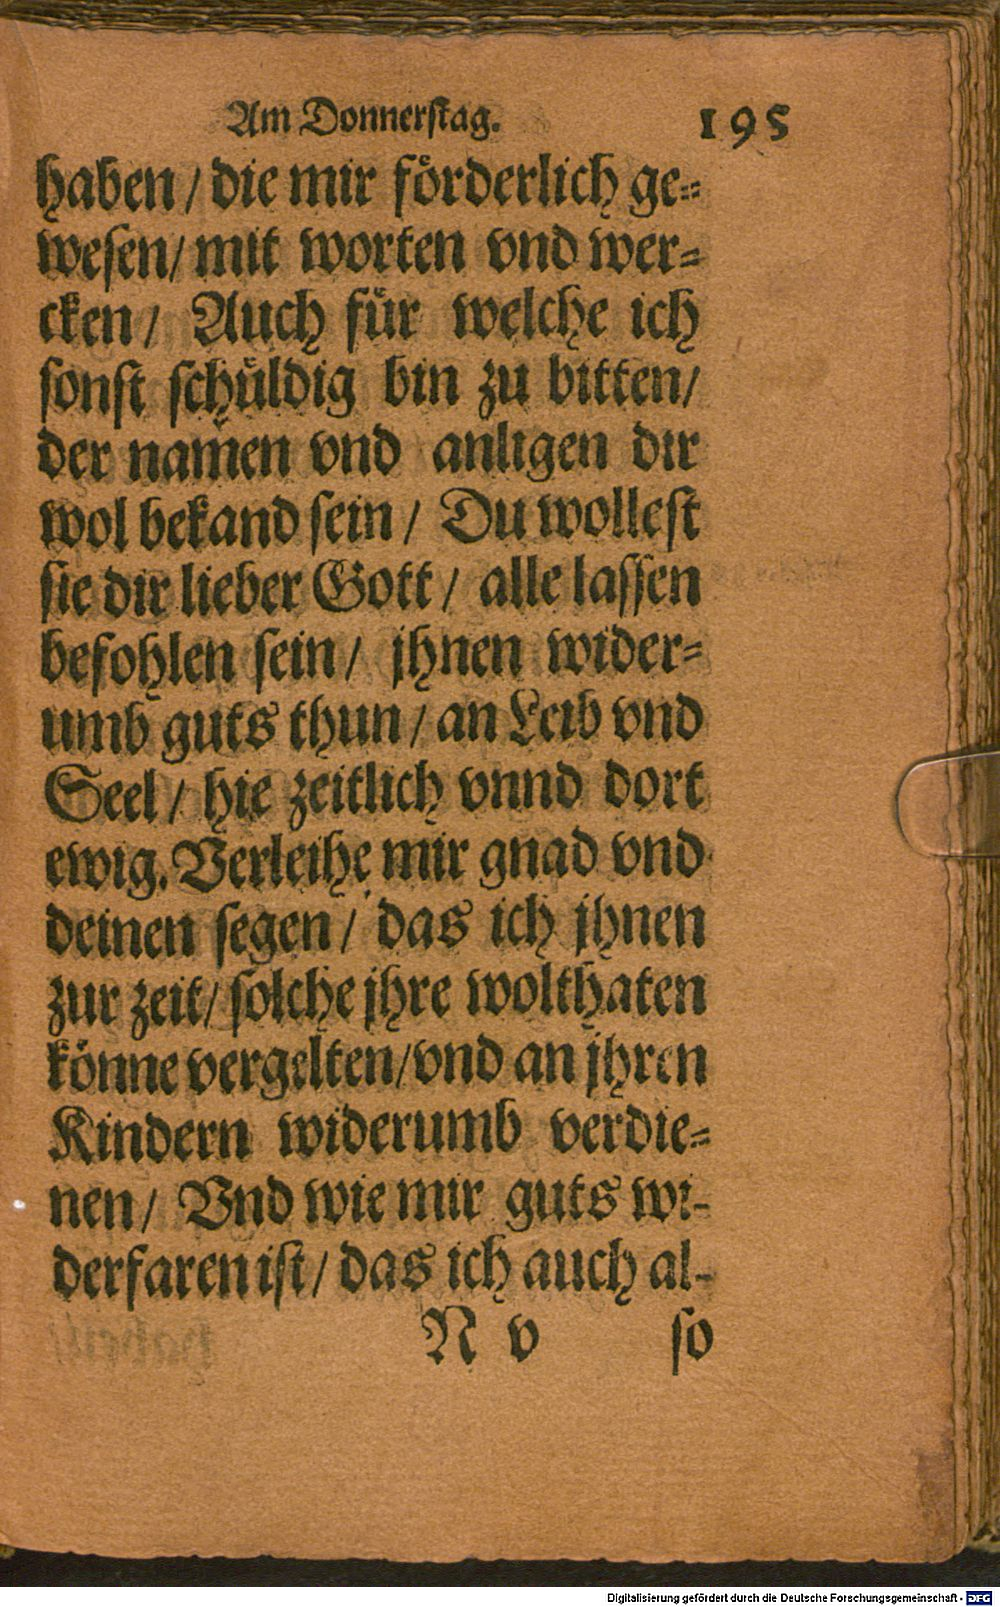 Am Donnerstag. 195
haben / die mir förderlich ge=
wesen / mit worten vnd wer=
cken / Auch für welche ich
sonst schüldig bin zu bitten /
der namen vnd anligen dir
wol bekand sein / Du wollest
sie dir lieber Gott / alle lassen
befohlen sein / jhnen wider=
umb guts thun / an Leib vnd
Seel / hie zeitlich vnnd dort
ewig. Verleihe mir gnad vnd
deinen segen / das ich jhnen
zur zeit / solche jhre wolthaten
könne vergelten / vnd an jhren
Kindern widerumb verdie=
nen / Vnd wie mir guts wi-
derfaren ist / das ich auch al-
N v so
Digitalisierung gefördert durch die Deutsche Forschungsgemeinschaft - DFG